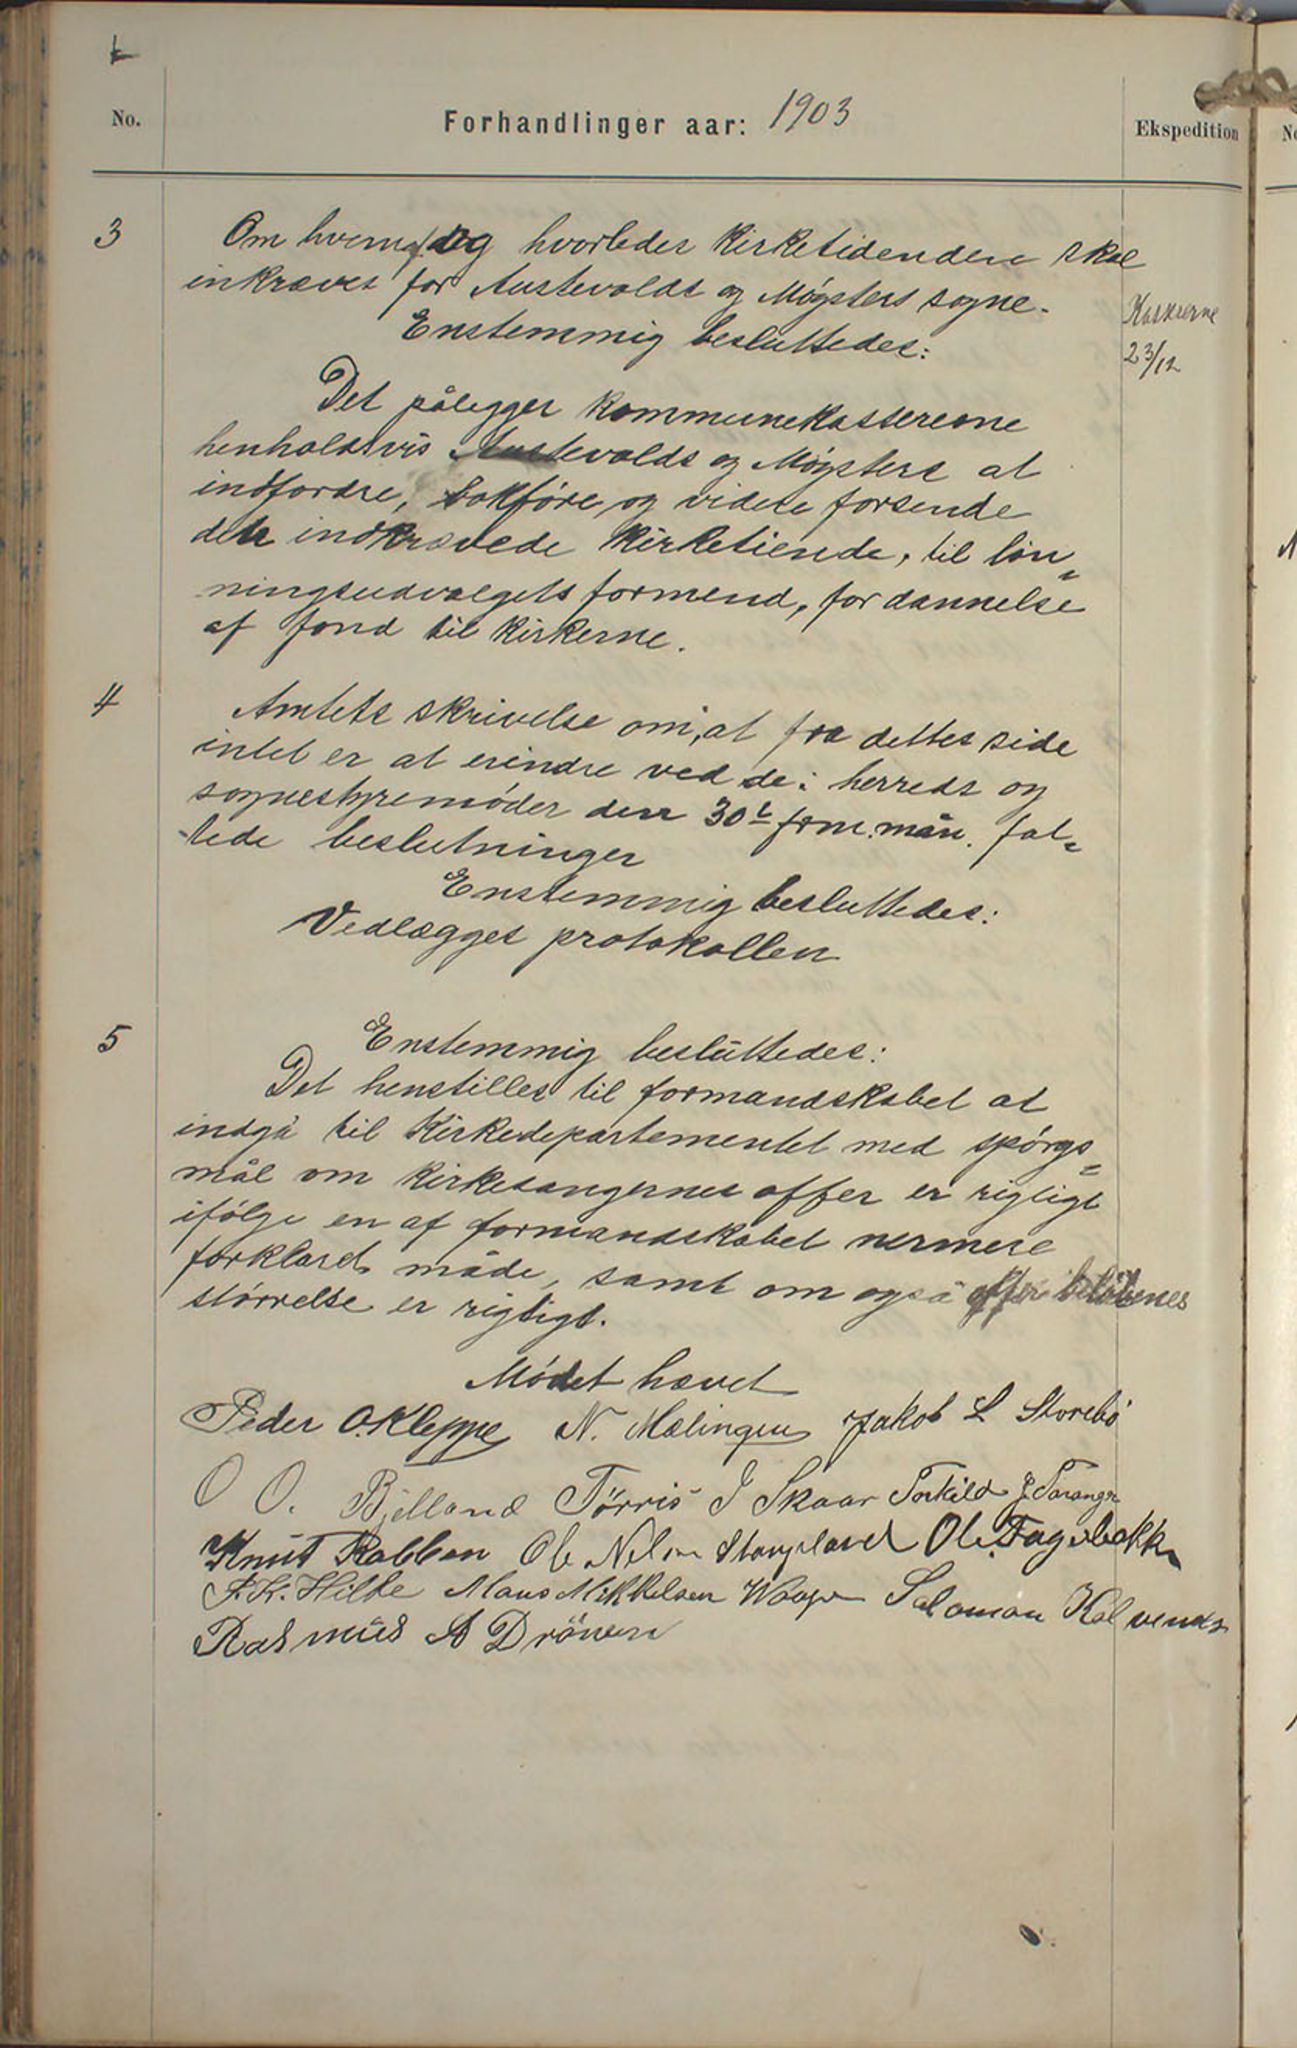 No.
Forhandlinger aar: 1903
Ekspedition
3
Om hvem og hvorledes Kirketidendere skal
inkræves for Austevolds og Møgsters sogne.
Enstemmig besluttedes:
Kasserne
23/12
Det pålegger kommunekassererne
henholdsvis Austevolds og Møgsters at
indfordre, bokføre og videre forsende
den indkrævede Kirketiende, til løn-
ningsudvalgets formend, for dannelse
af fond til kirkerne.
4
Amtets skrivelse om, at fra dettes side
intet er at erindre ved de i herreds og
sognestyremøder den 30t frm. mån. fat-
tede beslutninger
Enstemmig besluttedes:
Vedlægges protokollen
5
Enstemmig besluttedes:
Det henstilles til formandskabet at
indgå til Kirkedepartementet med spørgs-
mål om kirkesangernes offer er rigtigt
ifølge en af formandskabet nermere
forklaret måde, samt om også offerbeløbenes
størrelse er rigtigt.
Mødet hævet
Peder O. Kleppe N. Mælingen Jakob L Storebø
O O. Bjelland Tørris J Skaar Torkild J. Taranger
Knut Rabben Ole Nilsen Stangeland Ole Fagerbakke
A. K. Hilke Mons Mikkelsen Waage Salomon Kalvenes
Rasmus A Drönen